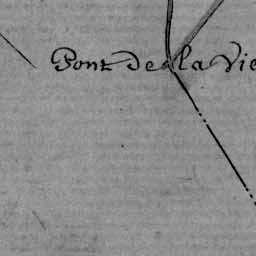 Pont de la Vie